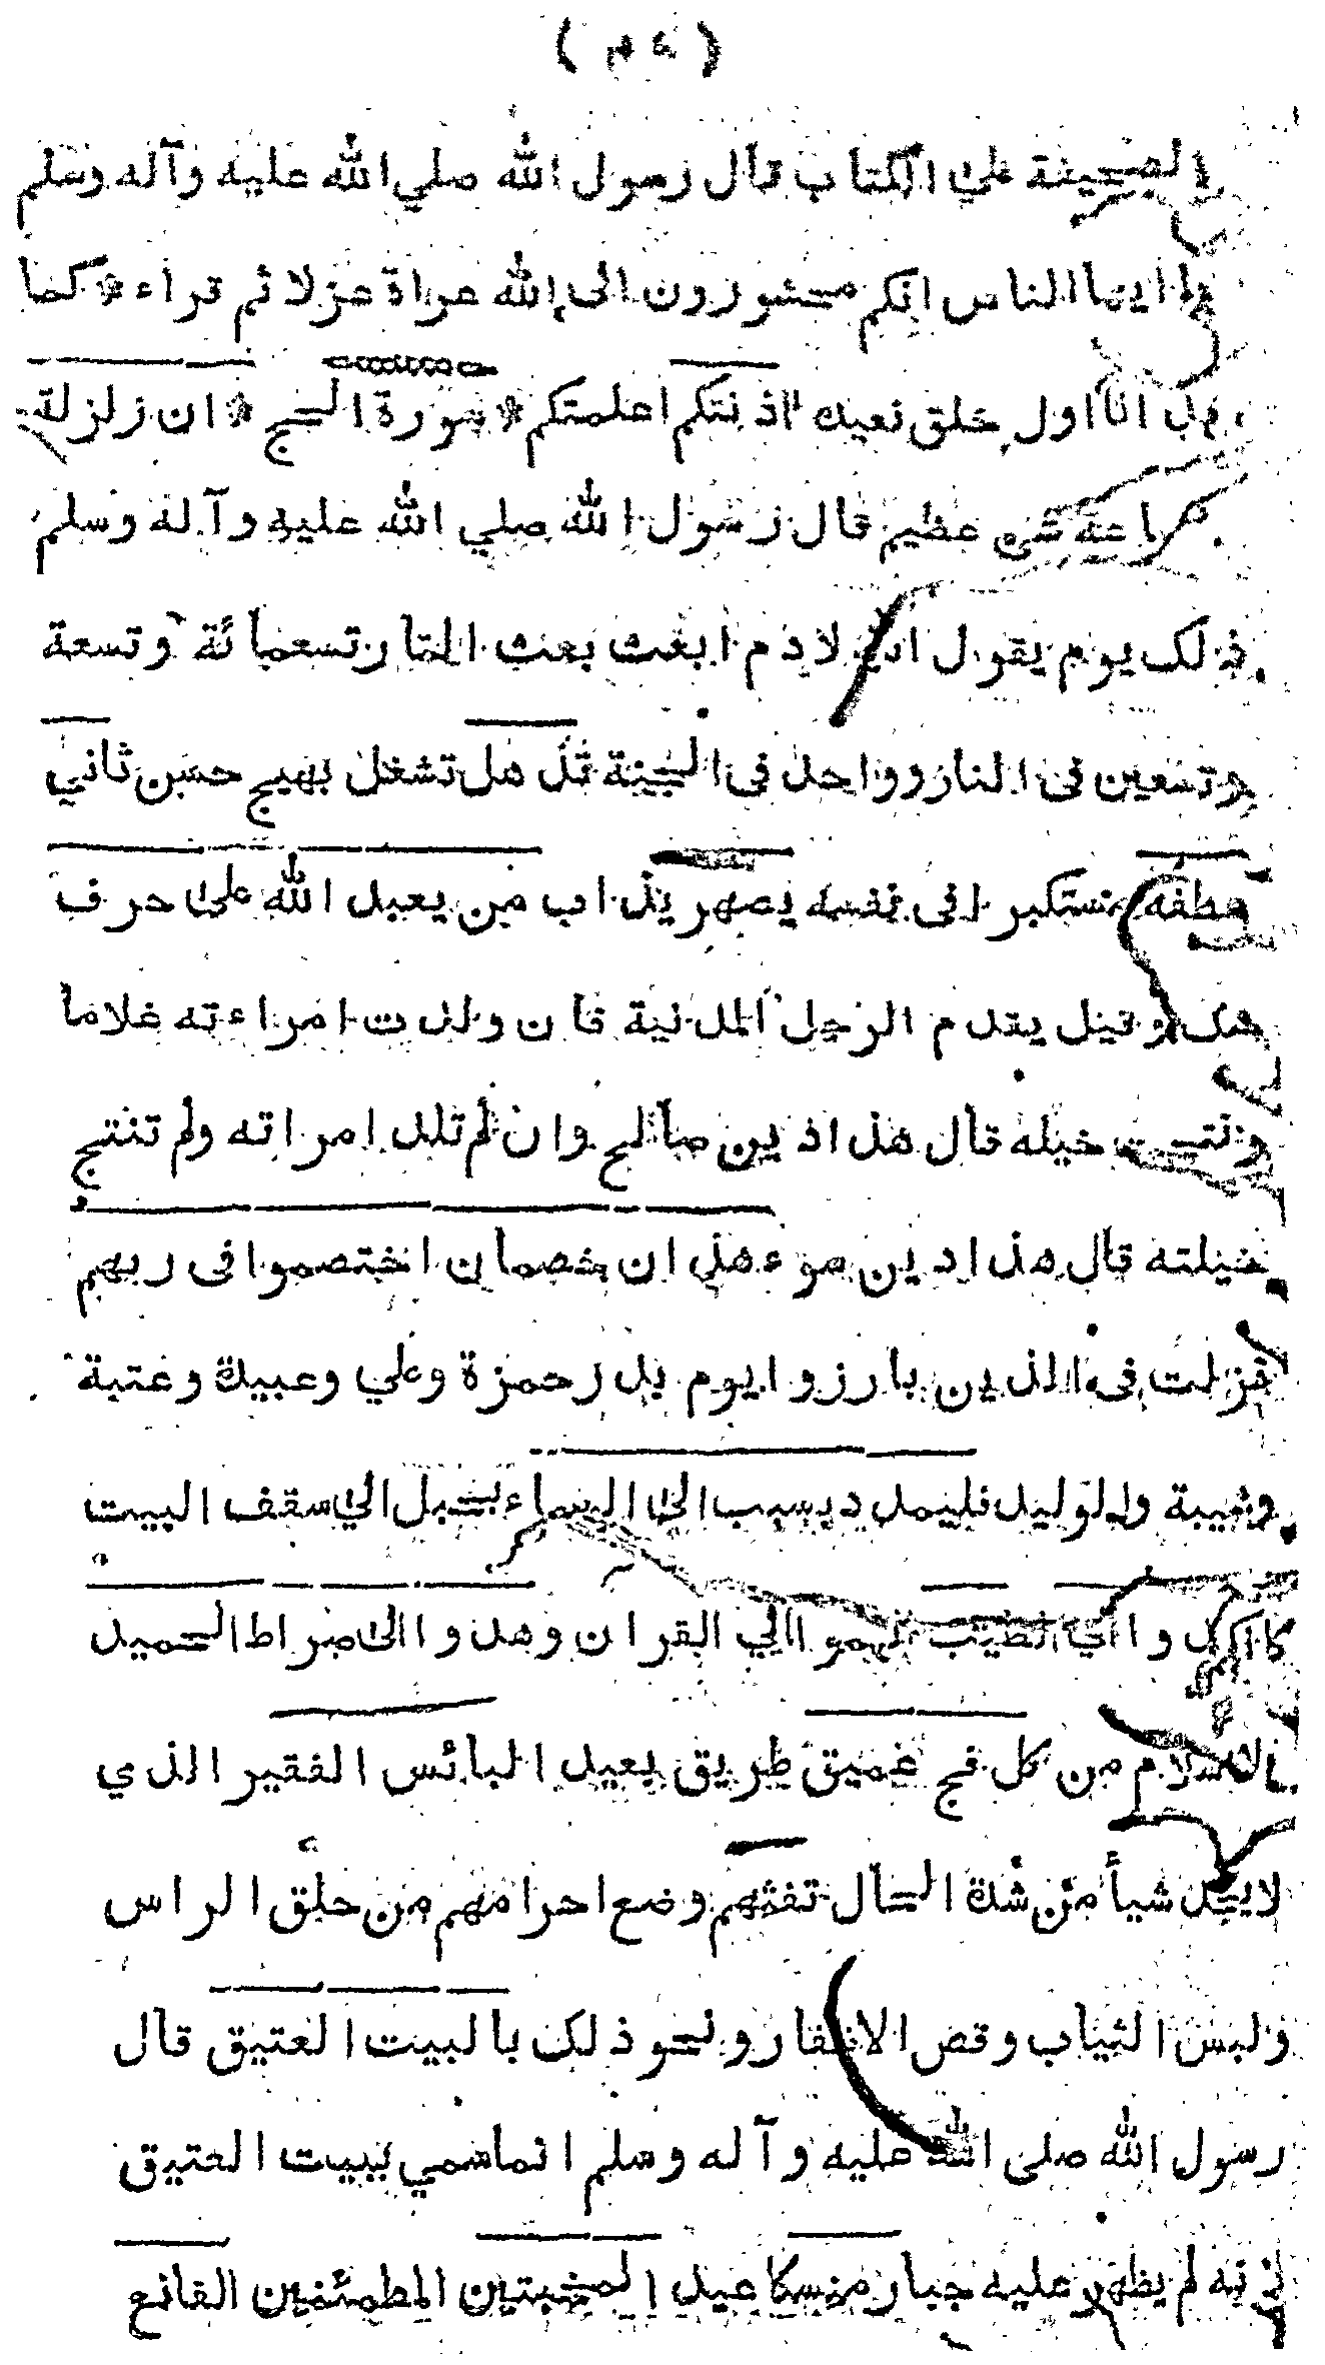 الصحيفة علي الكتاب قال رسول الله صلي الله عليه وآله وسلم
ايها الناس انكم محشورون الى الله عراة عزلا ثم قراء * كما
بدانا اول خلق نعيده اذنتكم اعلمتكم * سورة الحج * ان زلزلة
الساعة شيء عظيم قال رسول الله صلي الله عليه وآله وسلم
ذلك يوم يقول الله لادم ابعث بعث النار تسعمائة وتسعة
وتسعين فى النار وواحد فى الجنة تذهل تشغل بهيج حسن ثاني
عطفه مستكبر افى نفسه يصهر يذاب من يعبد الله على حرف
شك وقيل يقدم الرجل المدنية فان ولدت امراءته غلاما
ونتجت خيله قال هذا دين صالح وان لم تلد امراته ولم تنتج
خيلته قال هذا دين سوء هذان خصمان اختصموا فى ربهم
نزلت فى الذين بارزوا يوم بدر حمزة وعلي وعبيدة وعتبة
وشيبة والوليد فليمدد بسبب الى السماء بحبل الي سقف البيت
وا الي الطيب الهموا الي القران وهدوا الى صراط الحميد
الاسلام من كل فج عميق طريق بعيد البائس الفقير الذي
لايجد شيأ من شدة الحال تفثهم وضع احرامهم من حلق الراس
ولبس الثياب وقص الاظفار ونحو ذلك بالبيت العتيق قال
رسول الله صلى الله عليه وآله وسلم انماسمي ببيت العتيق
لانه لم يظهر عليه جبار منسكا عيد المخبتين المطمئنين القانع